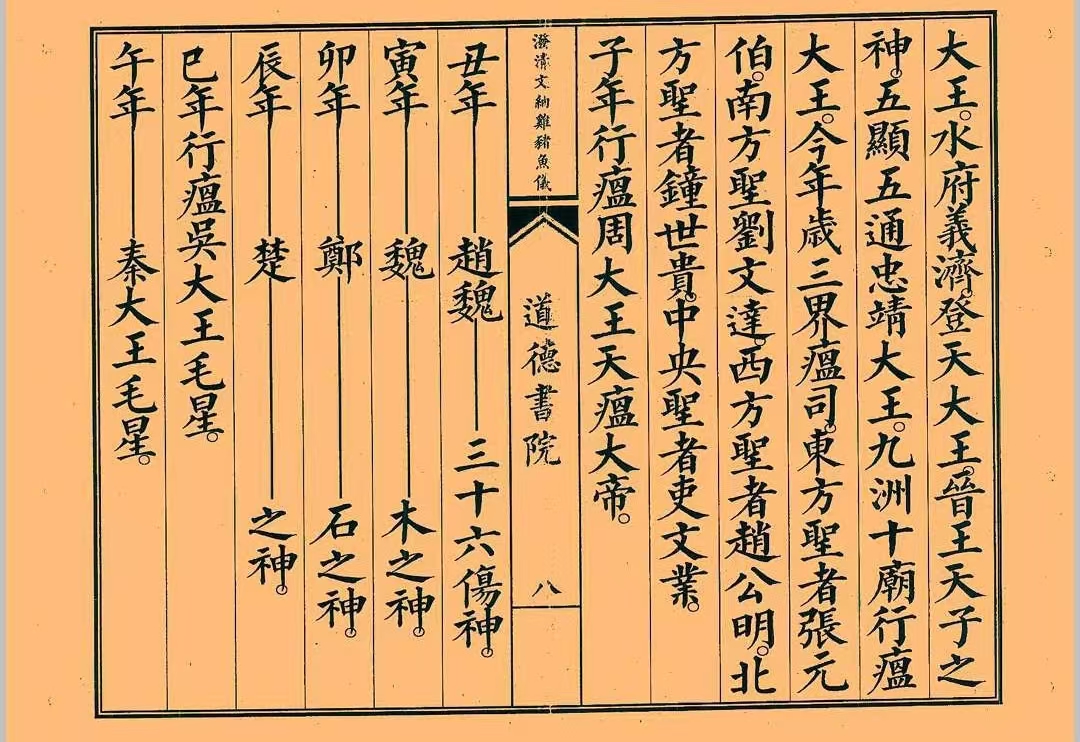 大王。水府義濟。登天大王。晉王天子之
神。五顯五通忠靖大王。九洲十廟行瘟
大王。今年歲三界瘟司。東方聖者張元
伯。南方聖劉文達。西方聖者趙公明。北
方聖者鐘世貴。中央聖者吏文業。
子年行瘟周大王天瘟大帝。
潑清文納雞豬魚儀
道德書院
八
丑年——趙魏——三十六傷神。
寅年——魏——木之神。
卯年——鄭——石之神。
辰年——楚——之神。
巳年行瘟吳大王毛星。
午年——秦大王毛星。